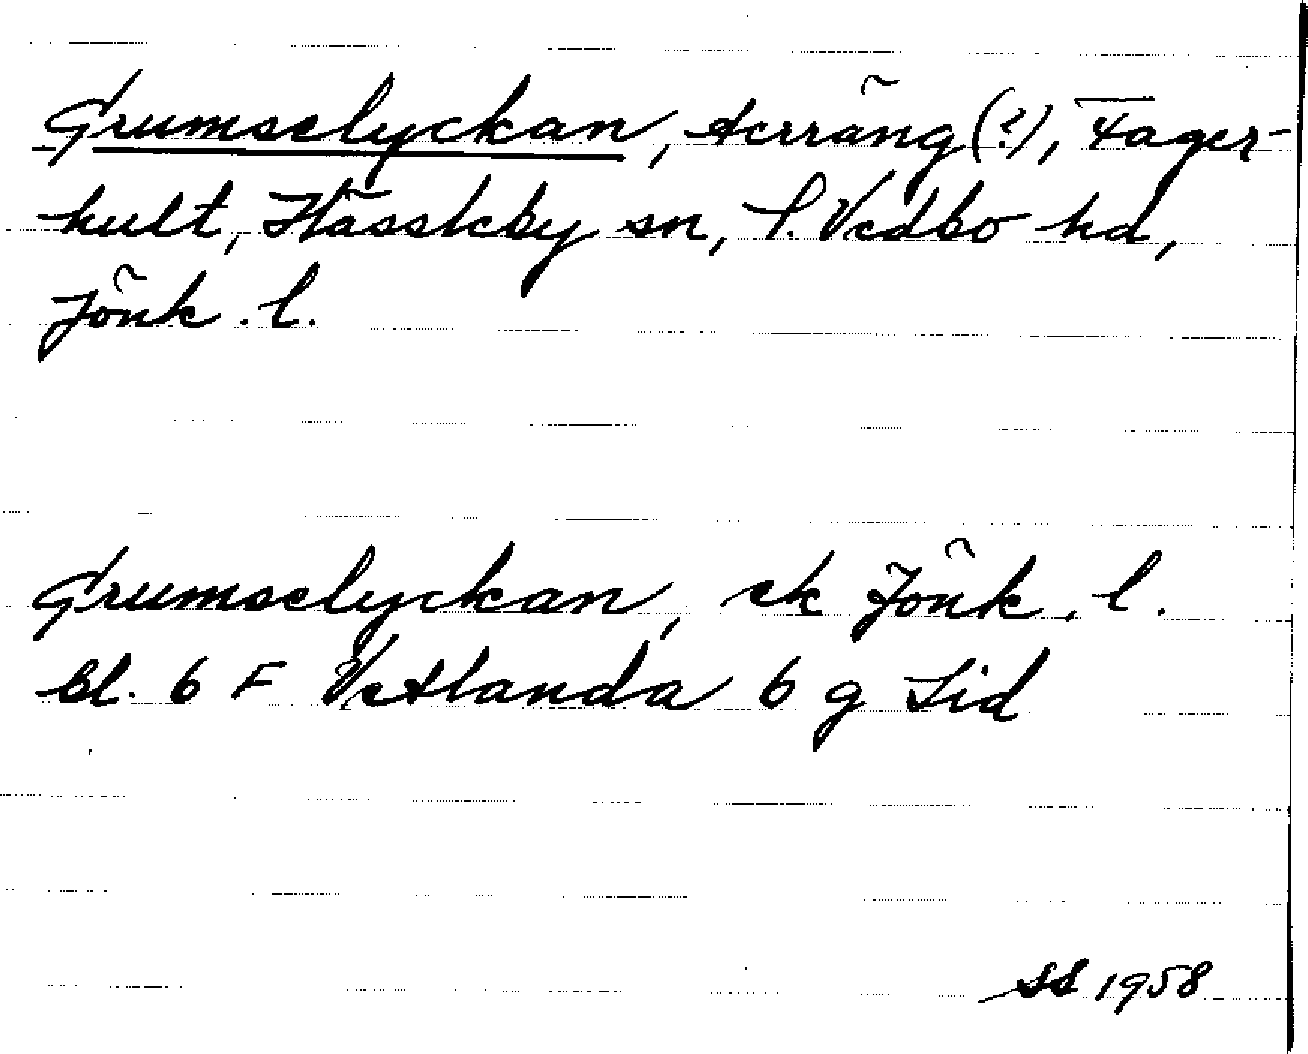 Grumselyckan, terräng (?), Fager-
hult, Hässleby sn, S. Vedbo hd,
Jönk. l.
Grumselyckan, ek Jönk. l.
bl. 6 F Vetlanda 6 g Lid
SS 1958